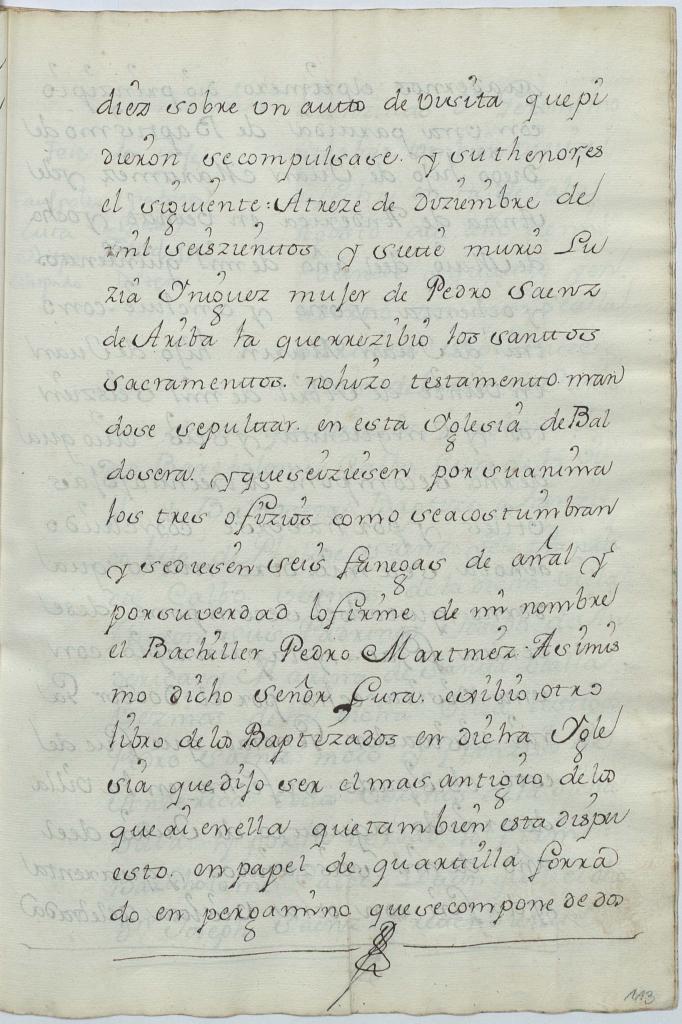 diez sobre vn autto de visita que pi
dieron secompulsase. y su thenor, es
el siguiente: A treze de Diziembre de
mil seiszienttos y siette murio Lu
zia Yniguez mujer de Pedro Saenz
de Ariba la que rrezibio los santtos
sacramenttos. nohizo testamentto man
dose sepultar. en esta Yglesia de Bal
dosera. y que seiziesen por su anima
los tres ofizios como seacostumbran
y sediesen seis fanegas de añal y
por su verdad lo firme de mi nombre
el Bachiller Pedro Martinez. Asimis
mo dicho señor Cura. exibio otro
libro de los Baptizados en dicha Ygle
sia que dijo ser el mas antiguo de los
que ai en ella que tambien esta dispu
esto. en papel de quartilla forra
do en pergamino que se compone de dos
113